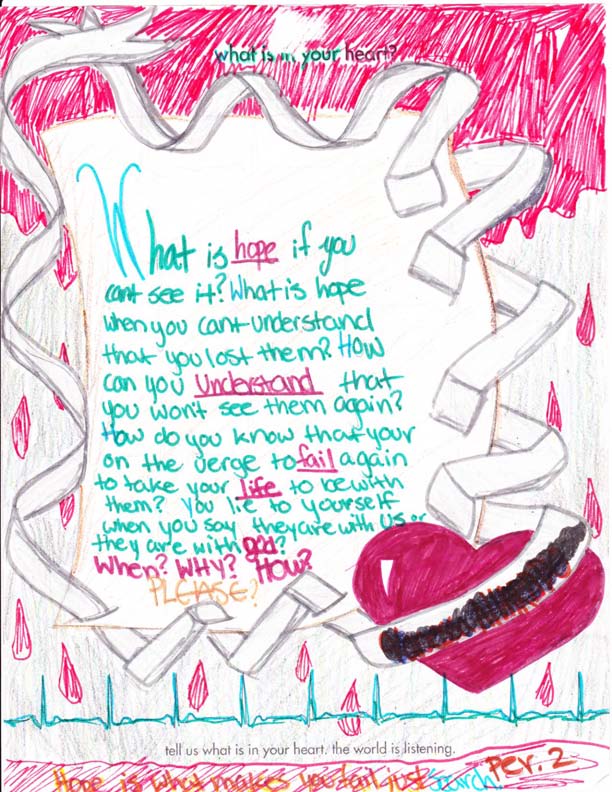 what is in your heart?
What is hope if you
cant see it? What is hope
when you cant understand
that you lost them? How
can you understand that
you won't see them again?
How do you know that your
on the verge to fail again
to take your life to be with
them? You lie to yourself
when you say they are with us or
they are with god?
When? Why? How?
PLEASE?
tell us what is in your heart. the world is listening.
Per. 2
Hope is what makes you fail just search.